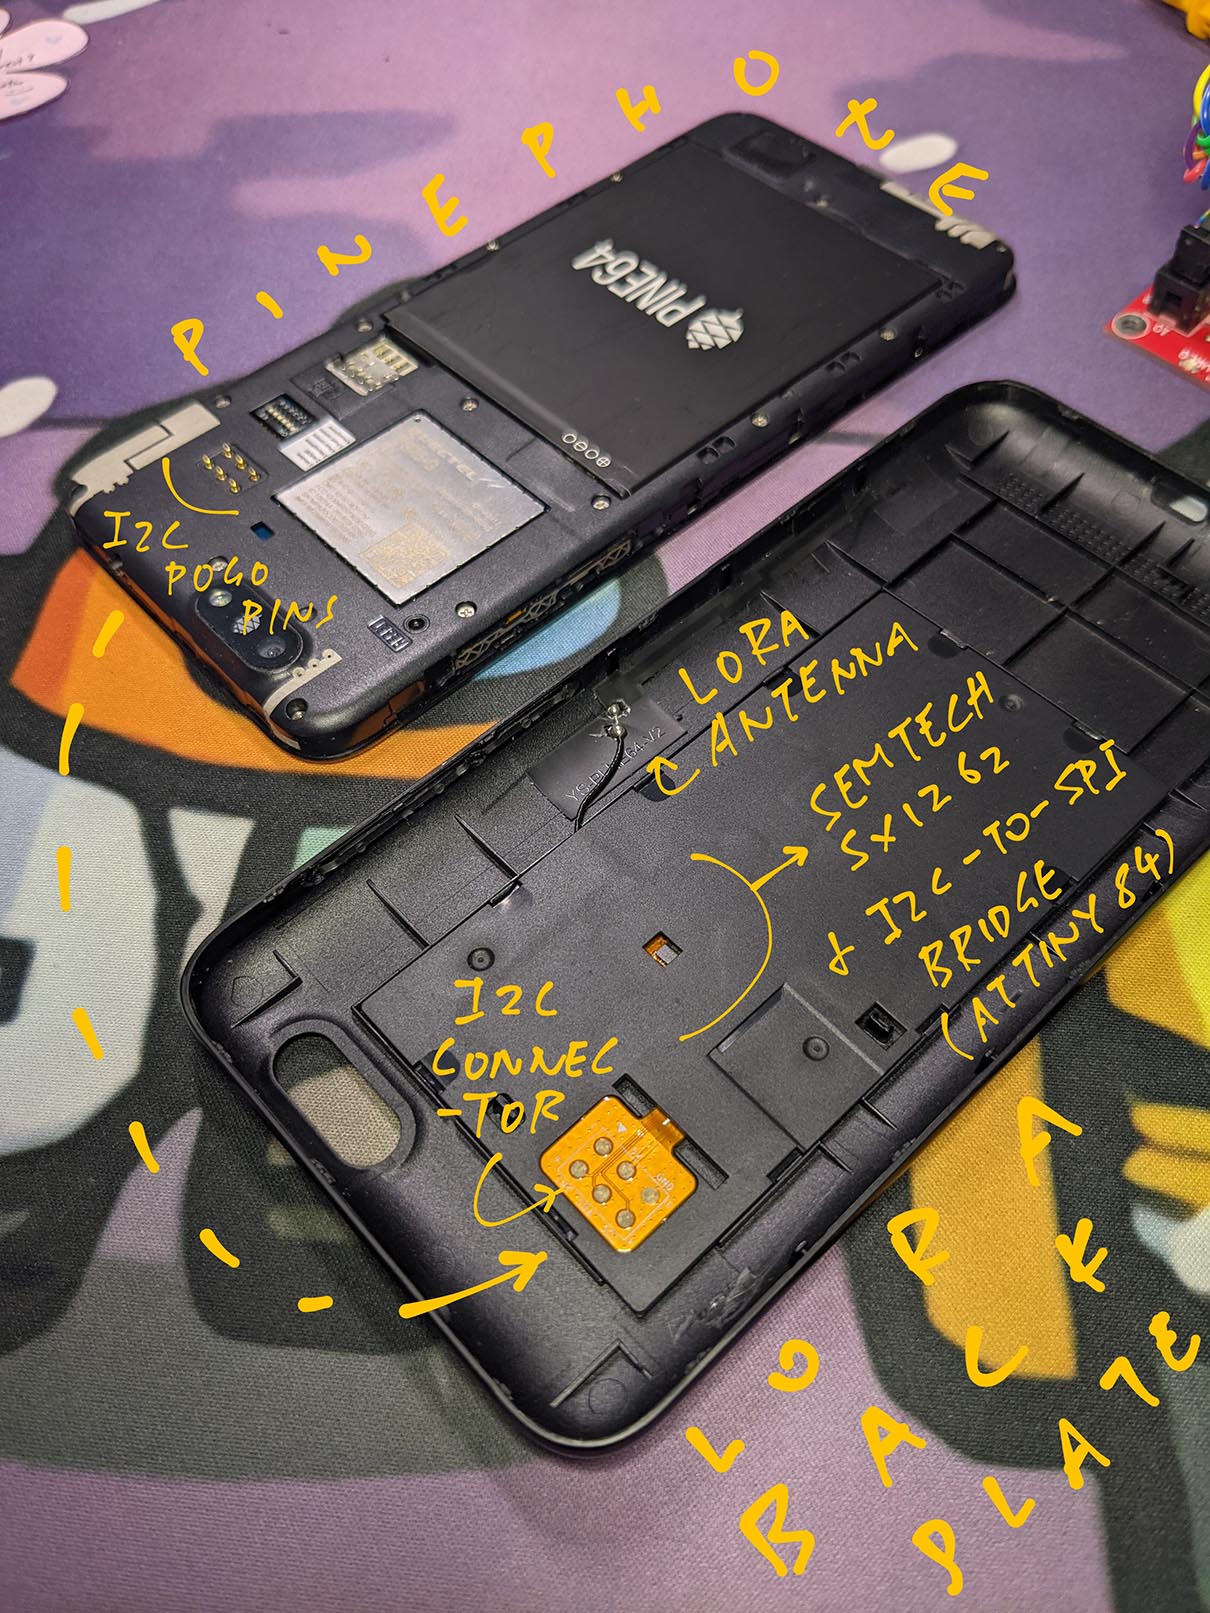 PINEPHONE
PINE64
I2C
POGO
PINS
LORA
ANTENNA
SEMTECH
SX1262
+ I2C-TO-SPI
BRIDGE
(ATTINY84)
I2C
CONNEC
-TOR
GND
LORA
BACK
PLATE